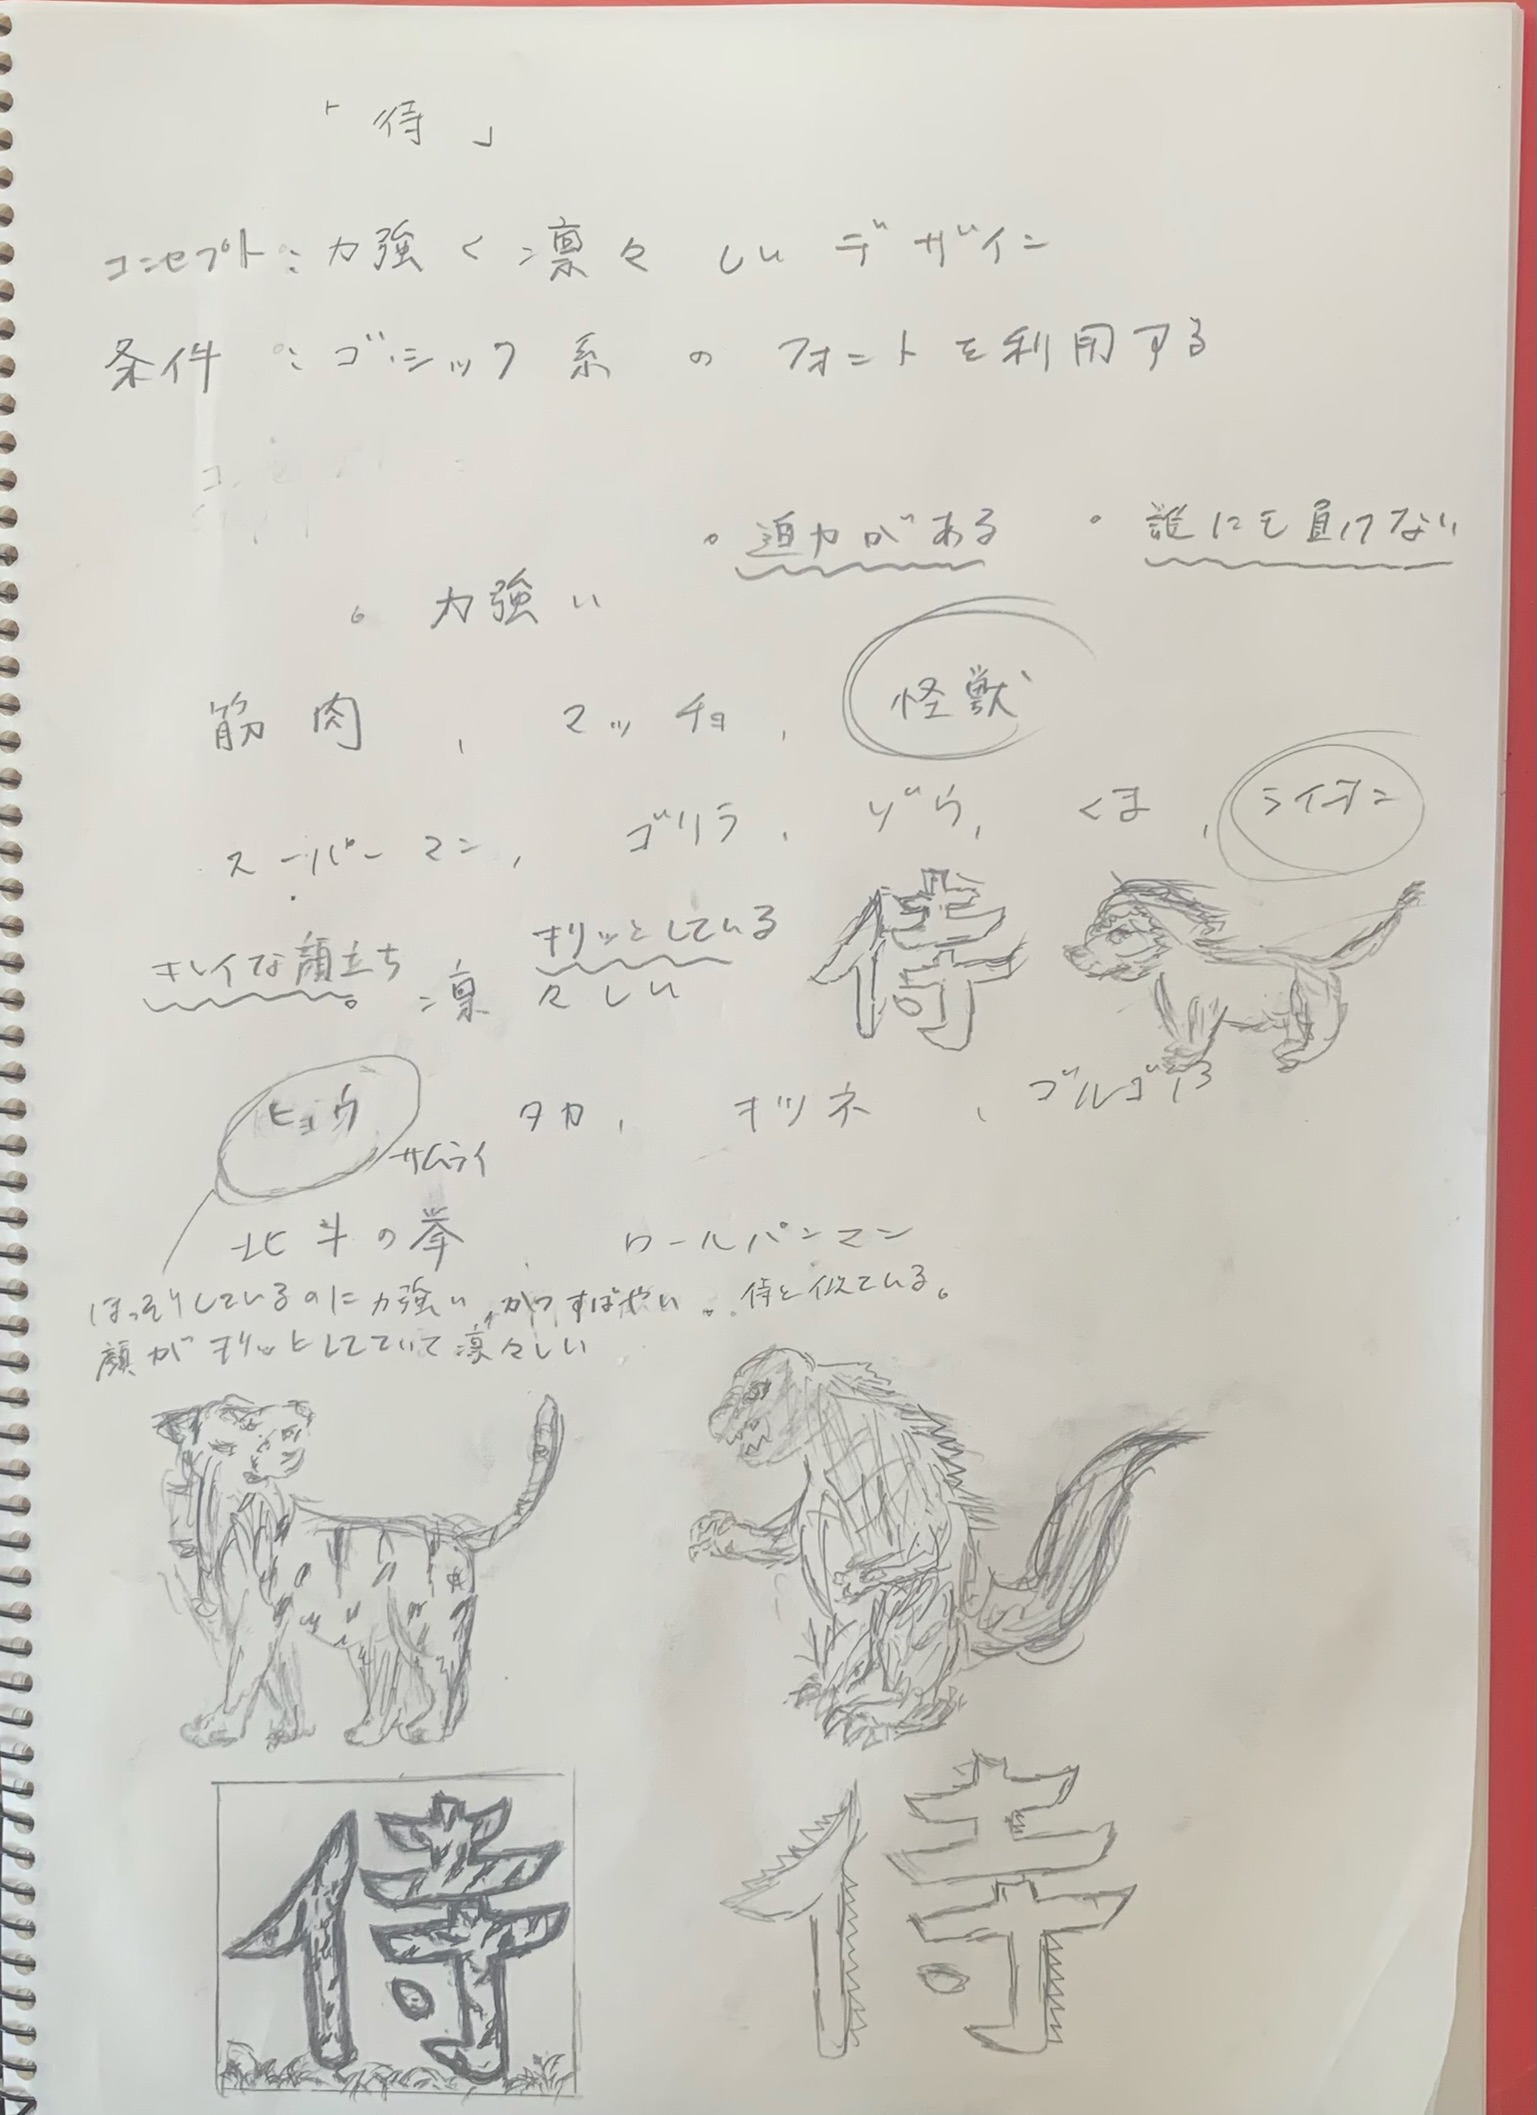 「侍」
コンセプト：力強く凛々しいデザイン
条件：ゴシック系のフォントを利用する
・迫力がある ・誰にも負けない
・力強い
筋肉、マッチョ、怪獣
スーパーマン、ゴリラ、ゾウ、くま、ライオン
侍
キレイな顔立ち キリッとしている
。凛々しい
ヒョウ タカ、キツネ、ゴルゴ13
サムライ
北斗の拳 ロールパンマン
ほっそりしているのに力強い、かつすばやい。侍と似ている。
顔がキリッとしてていて凛々しい
侍 侍